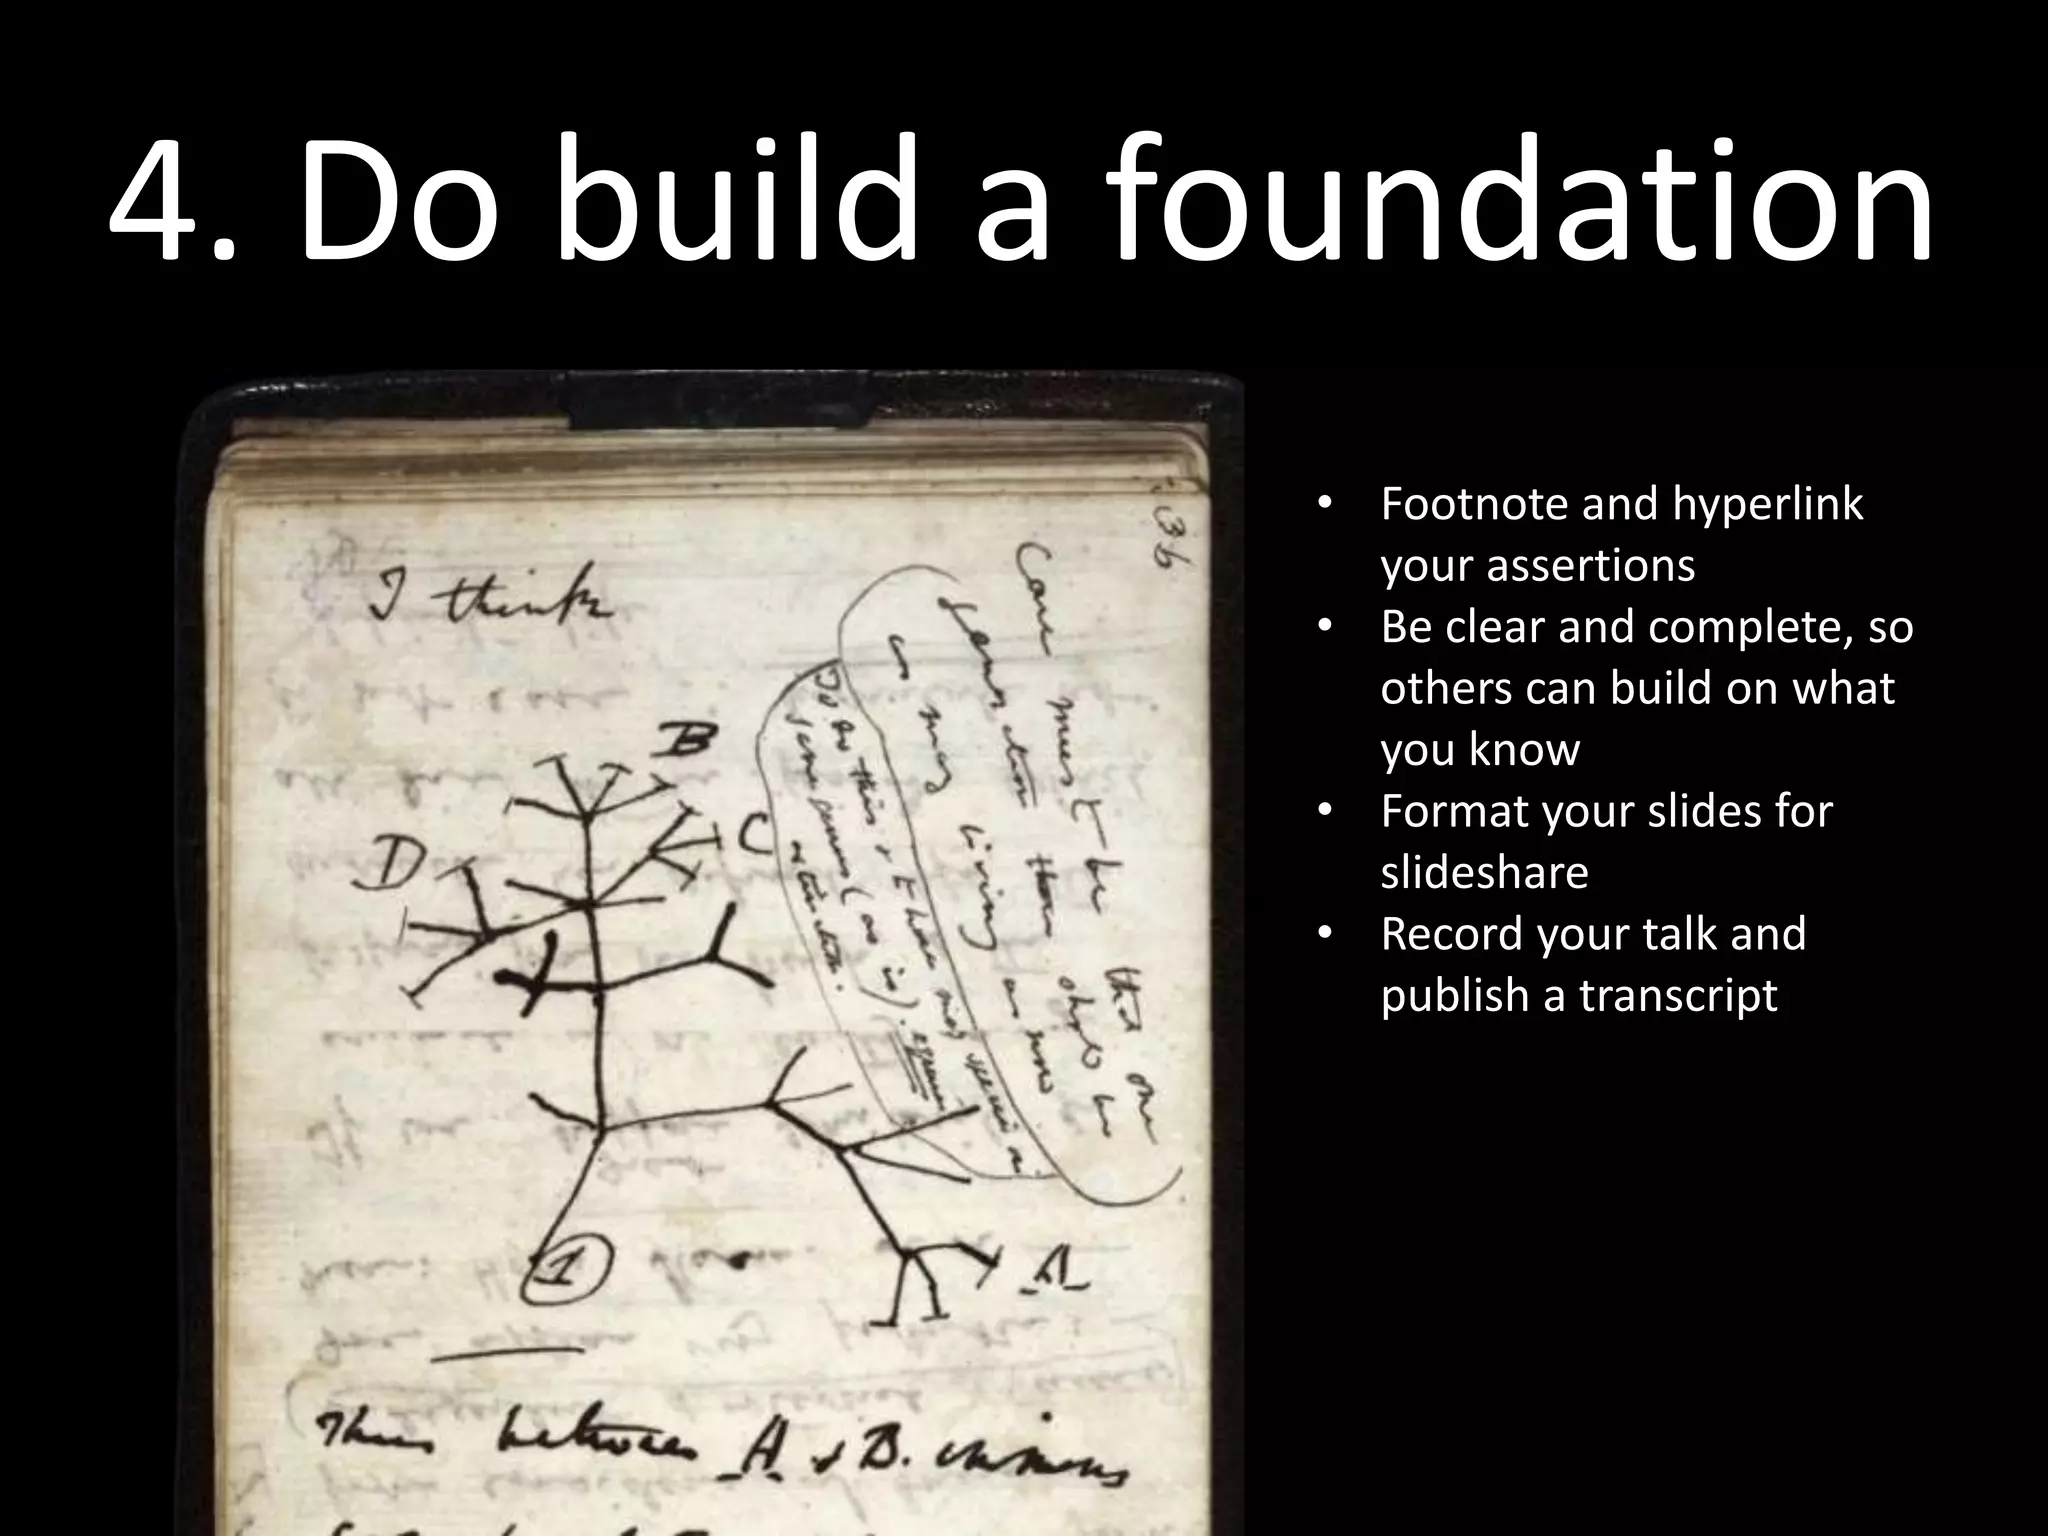 4. Do build a foundation
• Footnote and hyperlink
your assertions
• Be clear and complete, so
others can build on what
you know
• Format your slides for
slideshare
• Record your talk and
publish a transcript
36
I think
B
C
D
A
1
Case must be that one
generation then should be
as many living as now
To do this & to have many species in
same genus (as is). requires
extinction.
Thus between A & B. immense